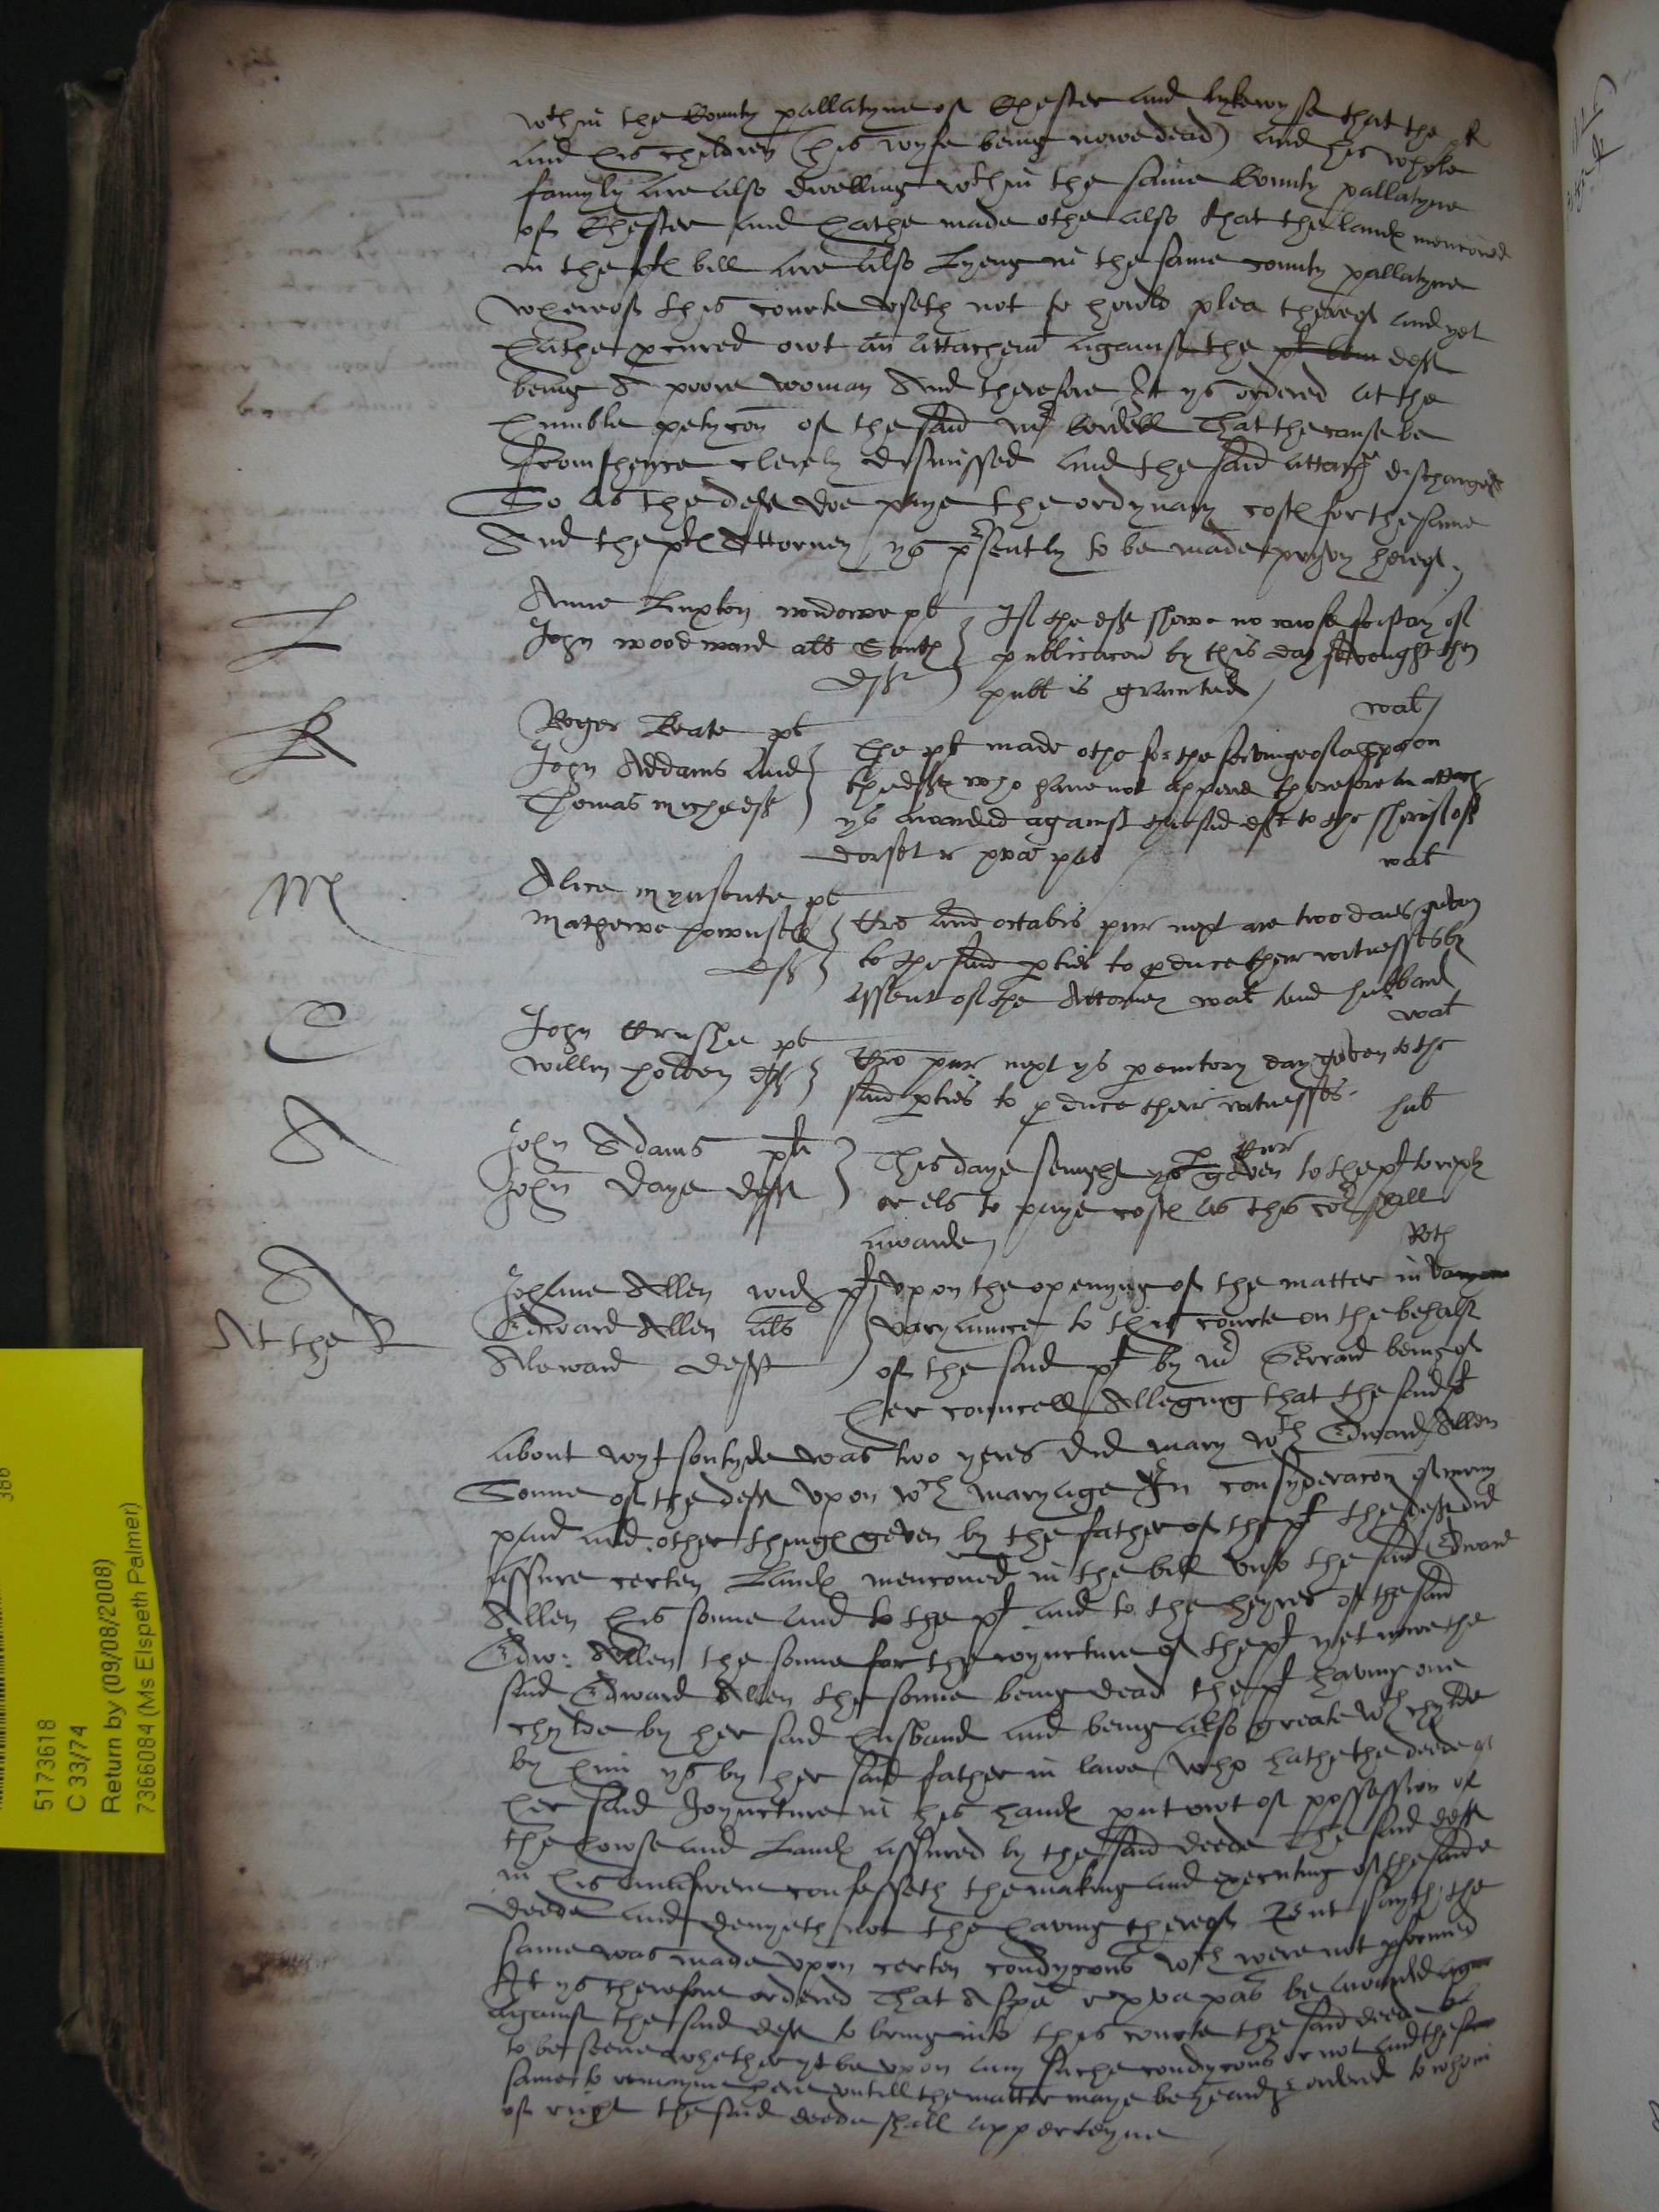 wthin the County pallatyne of Chester and lykewyse that the
and his children (his wyfe being nowe dead) and his whole
famyly are also dwelling wthin the same County pallatyne
of Chester and hathe made othe also that the landes mencioned
in the pl bill are also Lyeng in the same county pallatyne
whereof this courte useth not to howld plea thereof and yet
hathe pcured owt an attachemt against the deft
being A poore woman And therefore It ys ordered at the
humble petycon of the said mr That the cause be
from hence clerely dismissed and the said attachmt discharged
So as the deft doe paye the ordynary costes for the same
And the ptes Attorney ys psently to be made pryvy hereof
L
Anne Luxton wydowe pt
John woodward als Smyth
deft
If the deft shewe no cause for stay of
publicacon by this day sevenight then
publ is graunted
wat
K
Roger Keate pt
John Addams and
Thomas deft
The pt made othe for the servinge of a spa on
the deftes who have not appered therefore an attach
ys awarded against the said deft to the sherif of
dorset r pxa pas
wat
M
Alice Mynsente pt
Mathewe Hownsell
deft
tres and octabis pur next are two daies geven
to the said pties to pduce their witnesses by
assent of the Attorney wat and hubbard
wat
C
John pt
willm Holden deft
tres pur next ys pemtory day geven to the
said pties to pduce their witnesses
hub
A
John Adams plt
John Daye deft
This daye senight ys geven to the plt to reply
or els to paye costes as this cort shall
awarde
Roth
A
At the R
Johane Allen wid plt
Edward Allen als
Aleward deft
Upon the openyng of the matter in
varyaunce to this courte on the behalf
of the said plt by mr Gerrard being of
her councell Alleging that the said plt
about wytsontyde was two yeres did mary wth Edward Allen
Sonne of the deft upon wch maryage In consyderacon of mony
paid and other thinges geven by the father of the plt the deft did
assure certen Landes mencioned in the bill unto the said Edward
Allen his sonne and to the plt and to the heyres of the said
Edw: Allen the sonne for the joyncture of the plt yet nowe the
said Edward Allen the sonne being dead the plt having one
chylde by her said husband and being also greate wth chylde
by him ys by her said father in lawe (who hathe the deede of
her said Joyncture in his handes put owt of possession of
the howse and Landes assured by the said deede the said deft
in his Aunswere confesseth the making and executing of the saide
deede and denyeth not the having thereof But sayth the
same was made upon certen condycons wch were not pformed
It ys therefore ordered That A spa r pxa pas be awarded
against the said deft to bring into this courte the said deede
to be seene whether yt be upon any suche condycons or not and the
same to remayne here untill the matter maye be heard & ordered to whom
of right the said deede shall apperteyne
386
5173618
C 33/74
Return by (09/08/2008)
7366084 (Ms Elspeth Palmer)